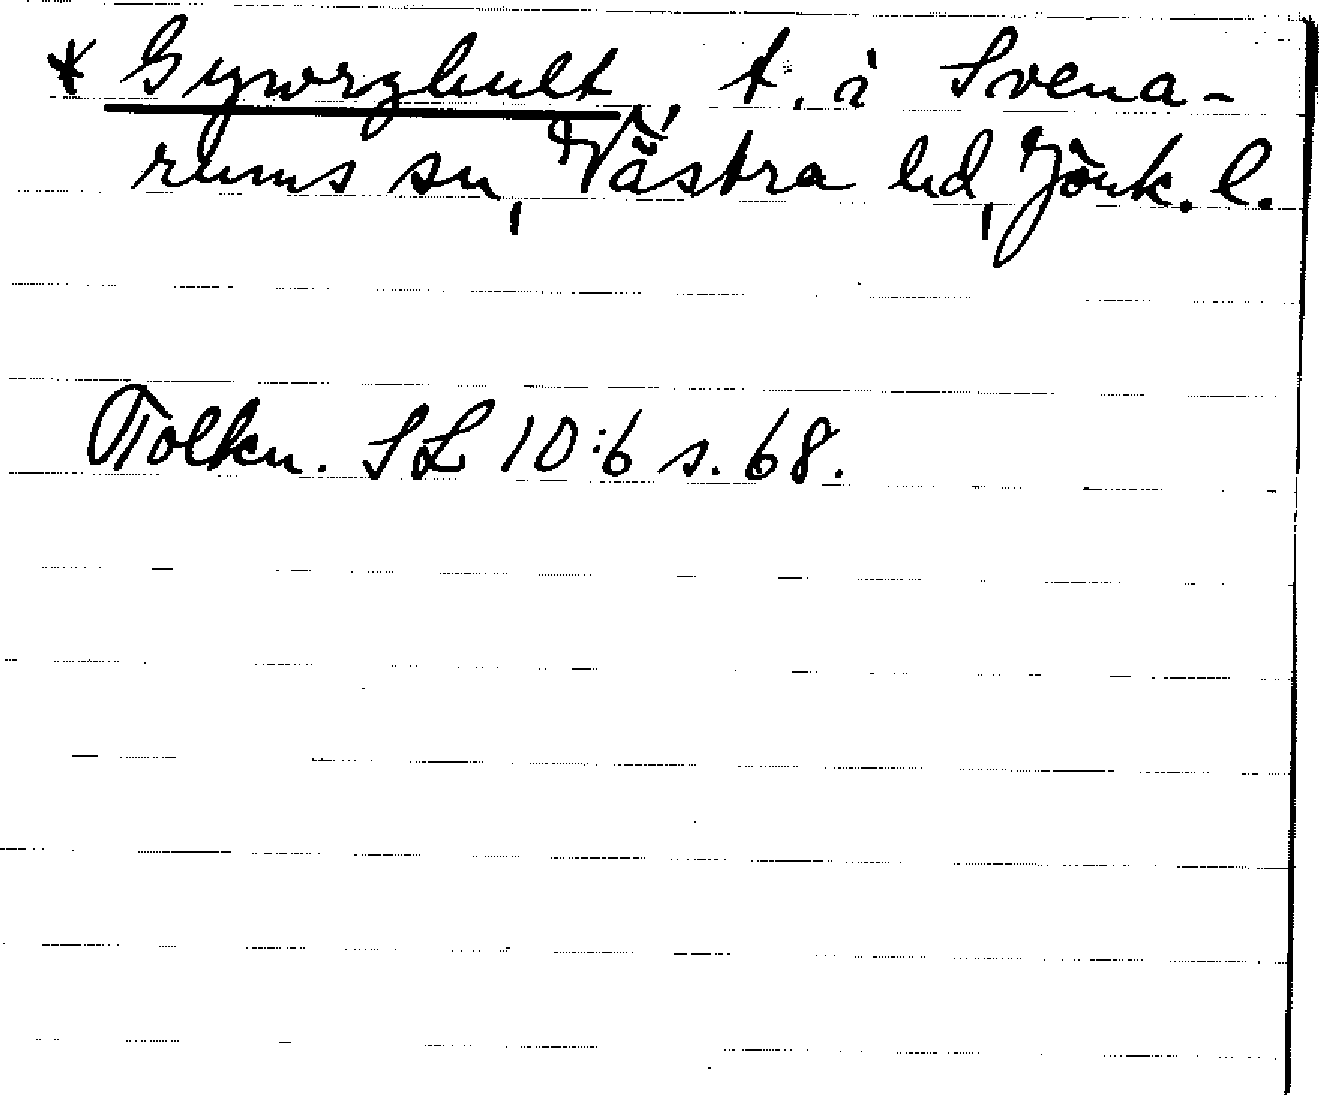 * Gyworzhult, t. i Svena-
rums sn, Västra hd, Jönk. l.
Tolkn. SL 10:6 s. 68.